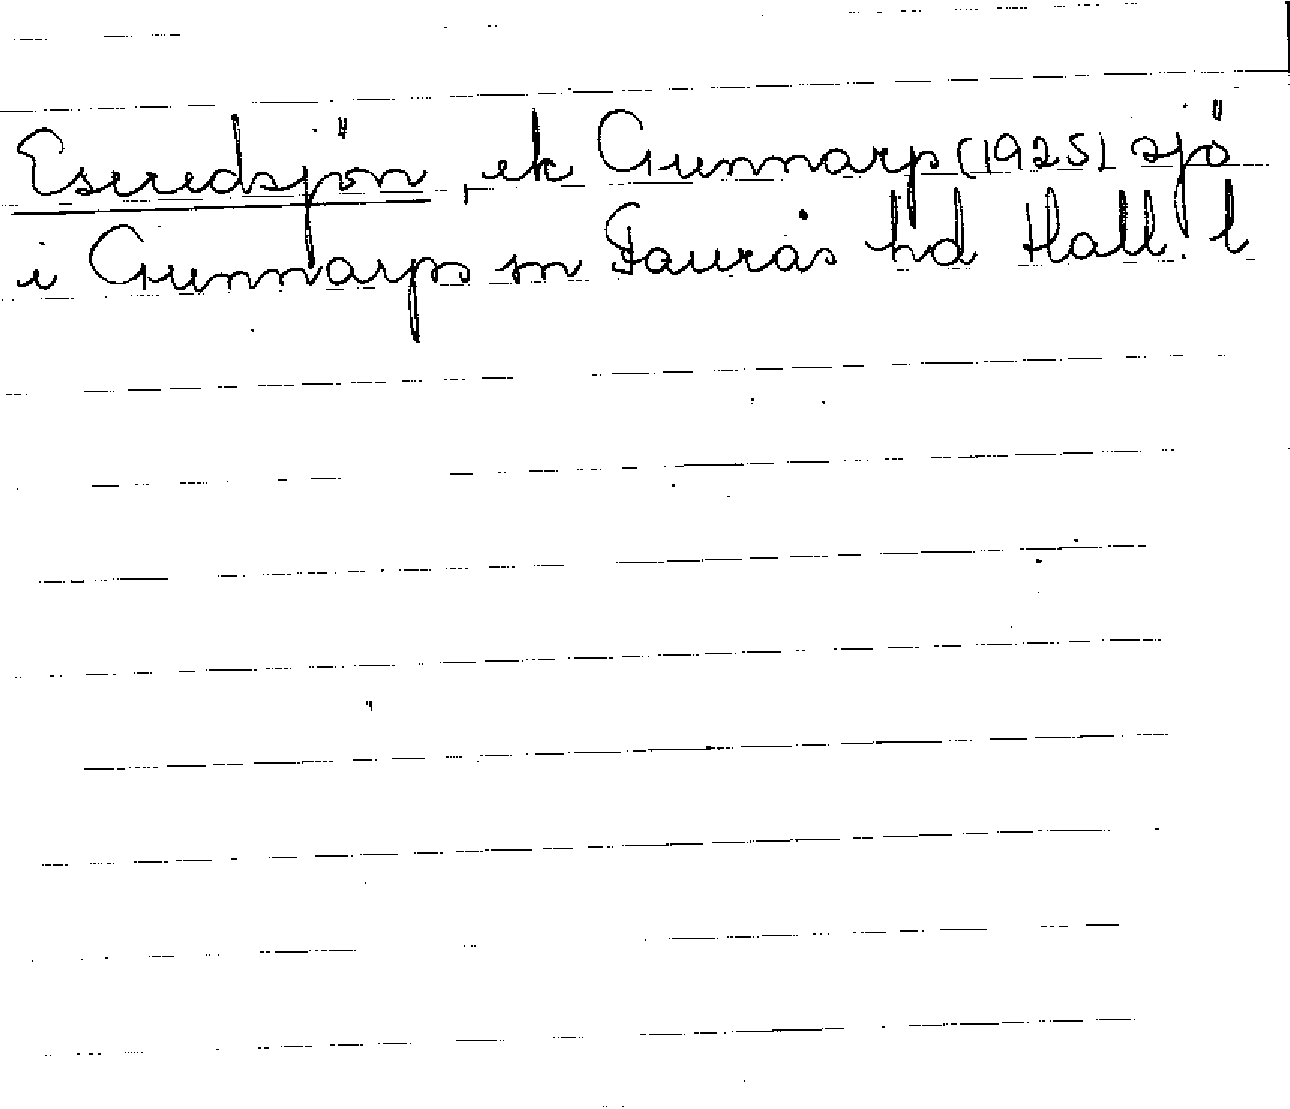 Eseredsjön, ek Gunnarp (1925) sjö
i Gunnarps sn Faurås hd Hall. l